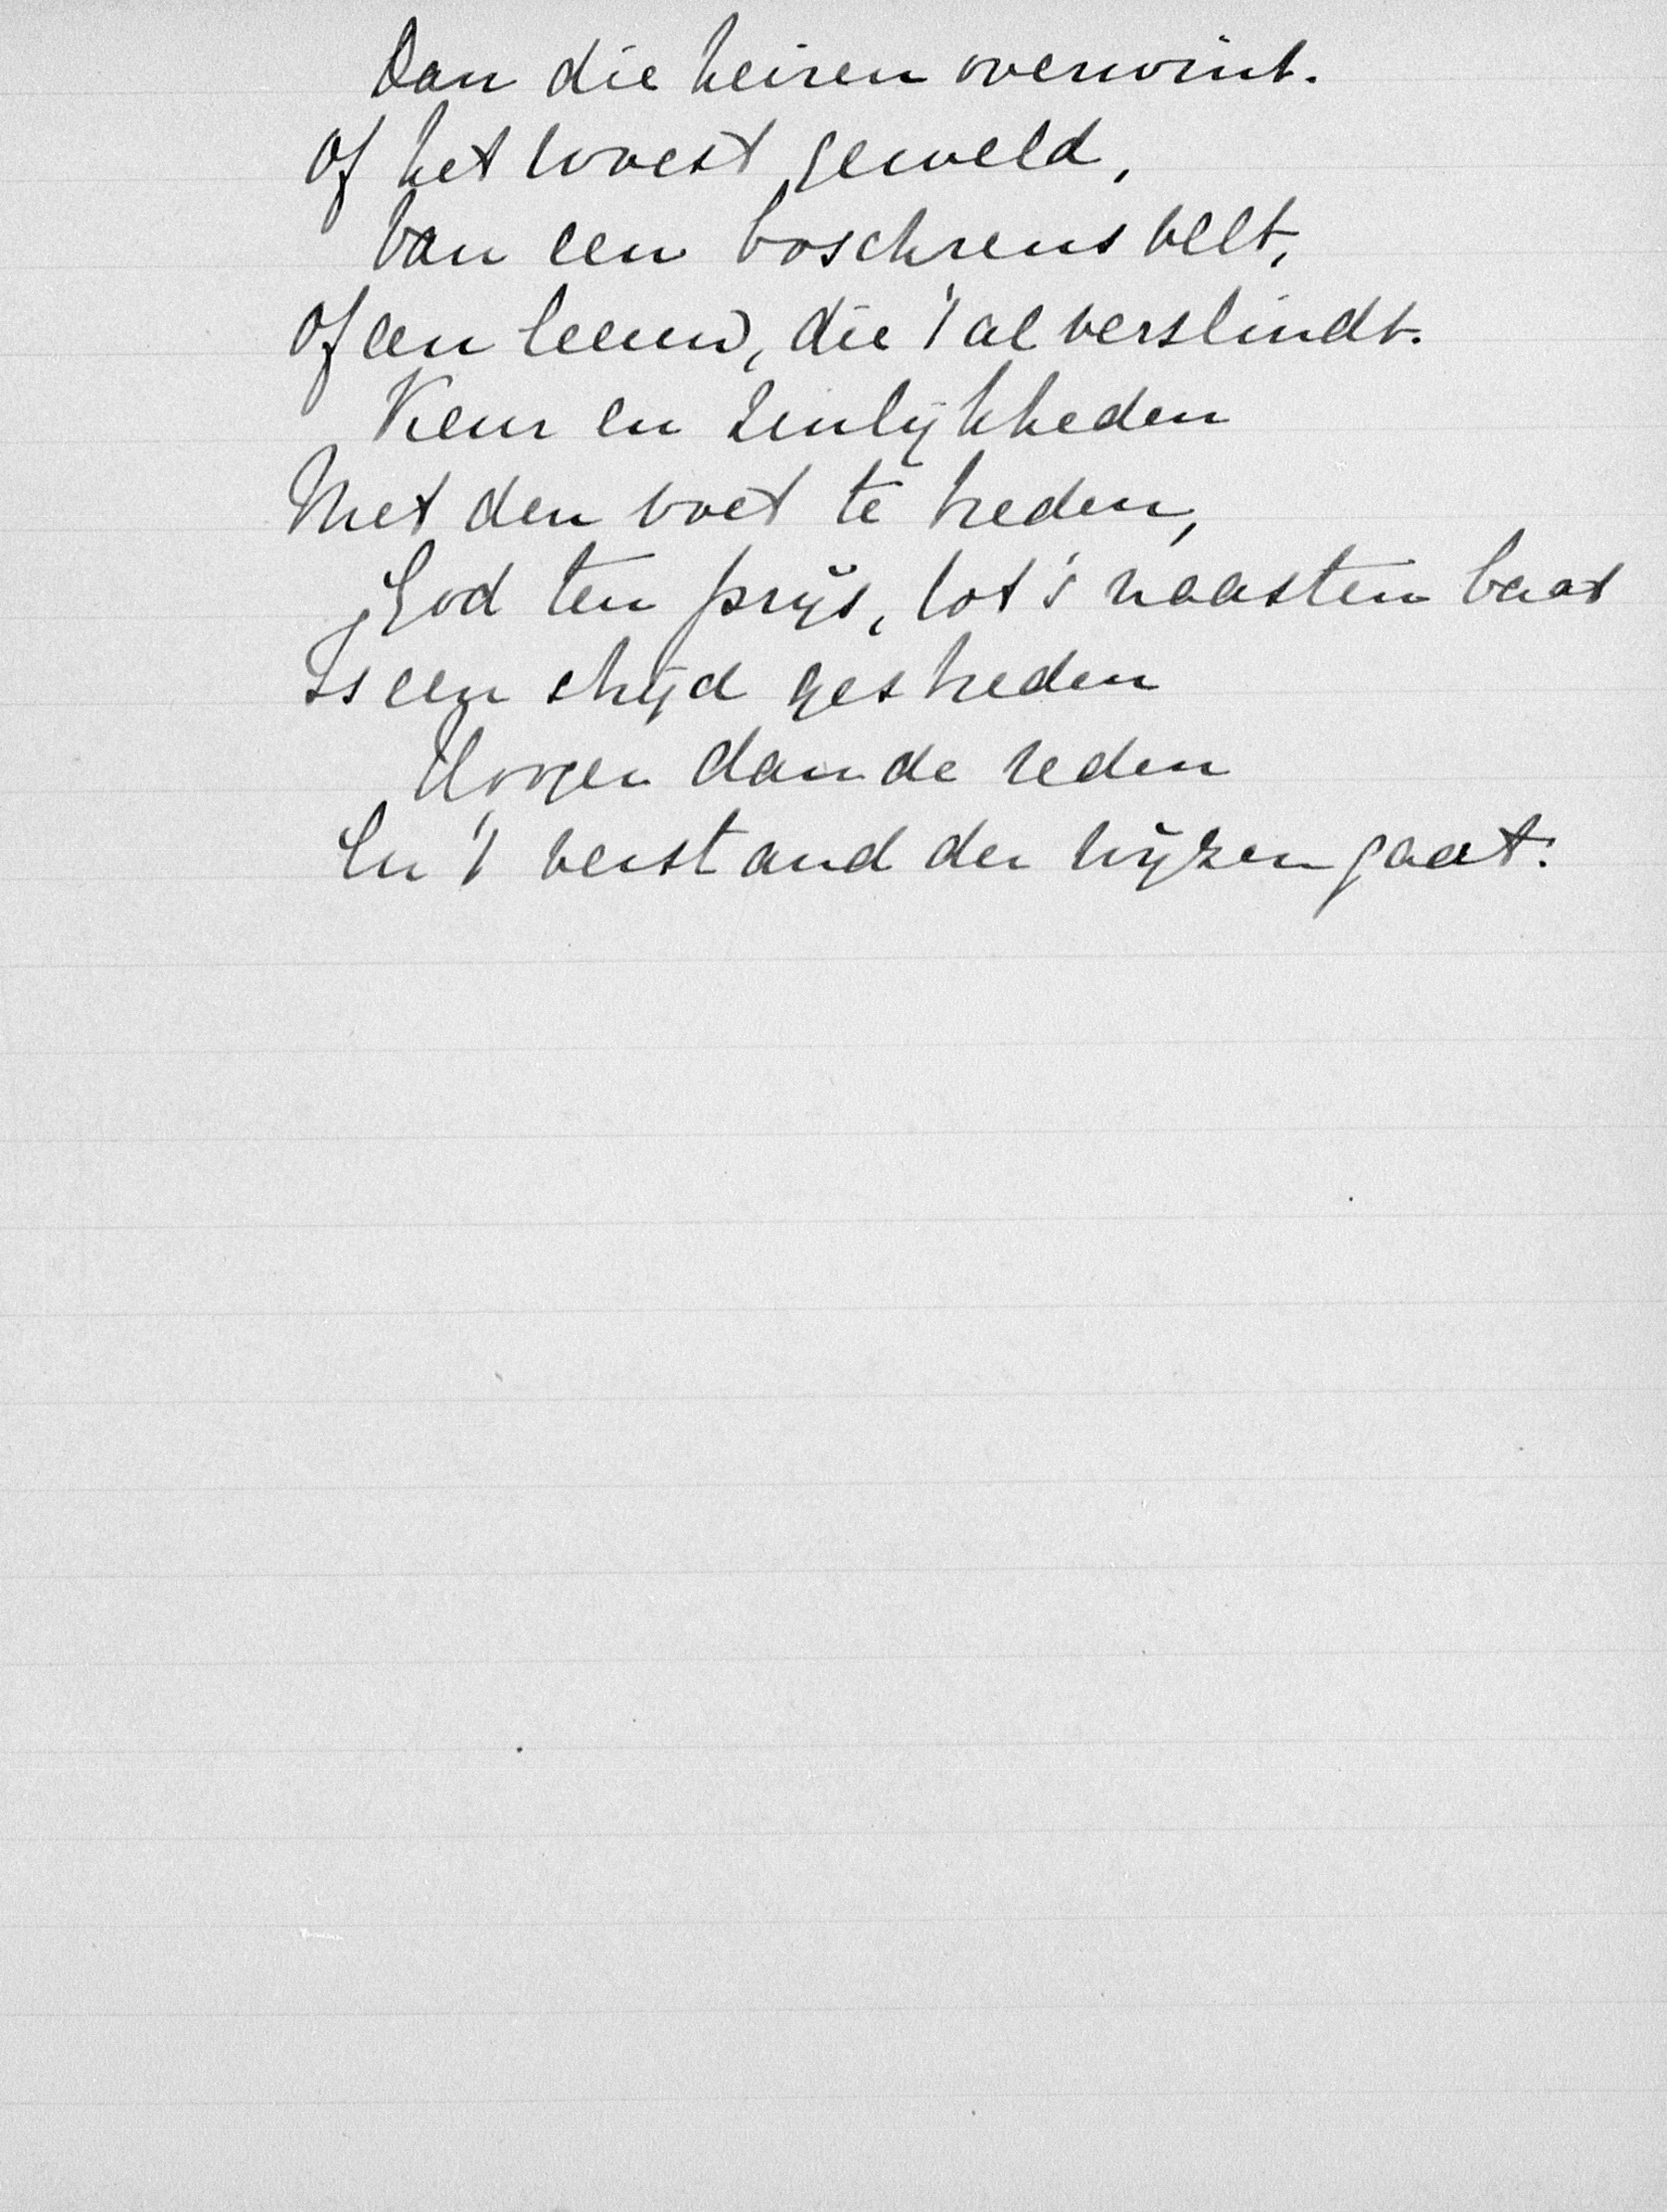 Dan die heiren overwint.
Of het woest geweld,
Van een boschreus velt,
Of een leeuw, die 't al verslindt.
Keur en zinlijkheden
Met den voet te treden,
God ten prijs, tot 's naasten baat
Is een strijd gestreden
Hooger dan de reden
En 't verstand der wijzen gaat.